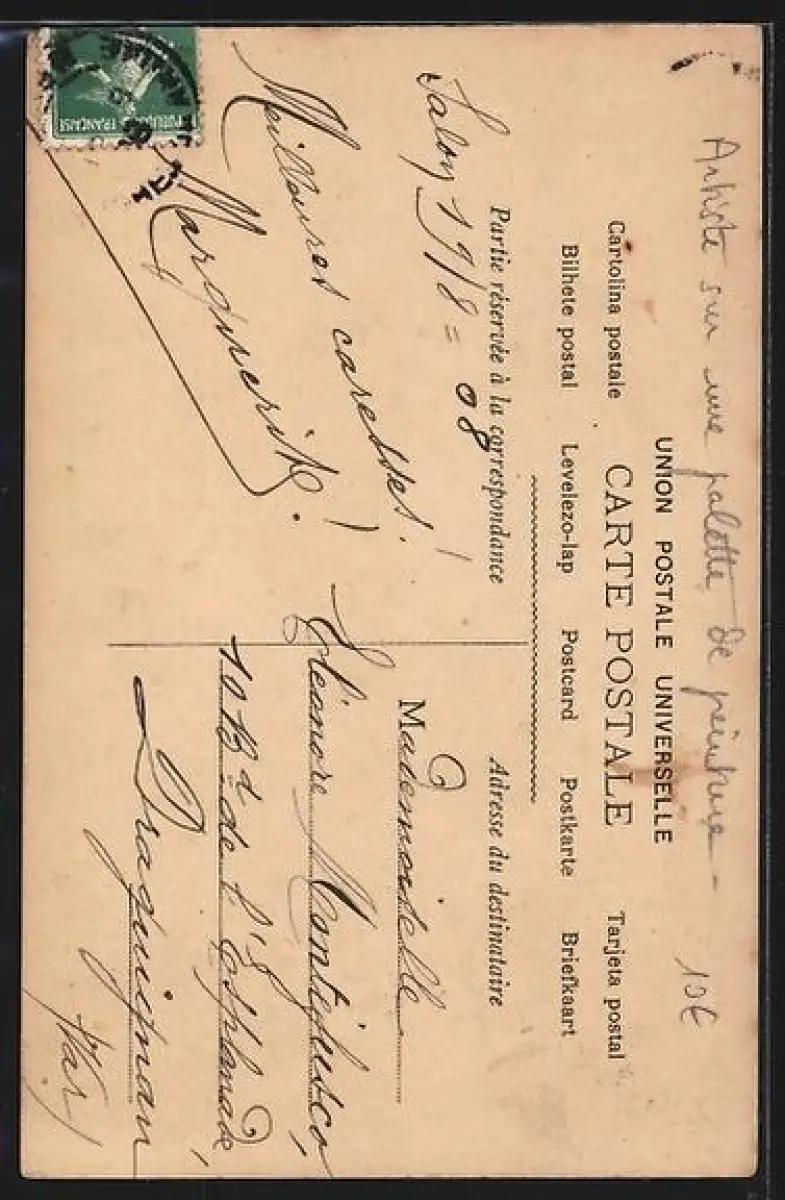 Artiste sur une palette de peinture - 10€
UNION POSTALE UNIVERSELLE
Cartolina postale CARTE POSTALE Tarjeta postal
Bilhete postal Levelezo-lap Postcard Postkarte Briefkaart
Partie réservée à la correspondance
Adresse du destinataire
Salon 19/8 = 08
Meilleures caresses!
Marguerite.
Mademoiselle
Eléonore
10 Bd de l'Esplanade
Draguignan
(Var)
POSTE FRANÇAISE